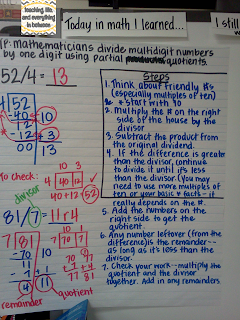 teaching, life,
and everything
in between
Today in math I learned...
I still
mathematicians divide multidigit numbers
by one digit using partial quotients.
52/4 = 13
Steps
1. Think about friendly #s
(especially multiples of ten)
* Start with 40
2. Multiply the # on the right
side of the house by the
divisor
3. Subtract the product from
the original dividend.
4. If the difference is greater
than the divisor, continue
to divide it until it's less
than the divisor. (You may
need to use more multiples of
ten or your basic × facts - it
really depends on the #.
5. Add the numbers on
the right side to get the
quotient
6. Any number leftover (from the
difference) is the remainder--
as long as it's less than the
divisor.
7. Check your work--multiply
the quotient and the divisor
together. Add in any remainders.
4 52
-40 10
12
-12 +3
00 13
To check:
divisor
10 3
4 40 12
40+12 = 52
81/7 = 11 r4
7 81
-70 10
11
-7 +1
4 11
remainder
quotient
10 1
7 70 7
70 77
+7 +4
77 81